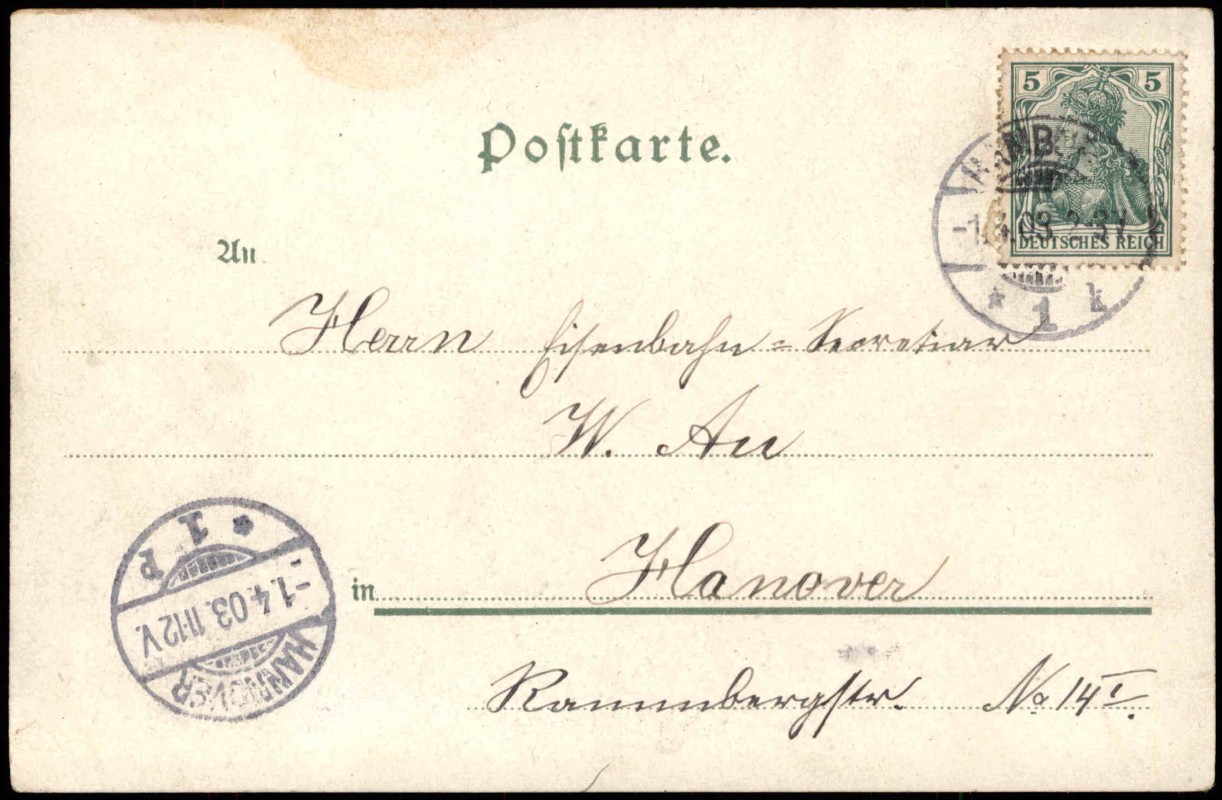 Postkarte.
5 5
DEUTSCHES REICH
HAMB
-1.4.03. 2-3V
* 1 k
An
Herrn Eisenbahn=Secretiar
W. Au
in Hanover
Rammbergstr. No 14 I.
HANNOVER
-1.4.03. 11-12V.
* 1 P